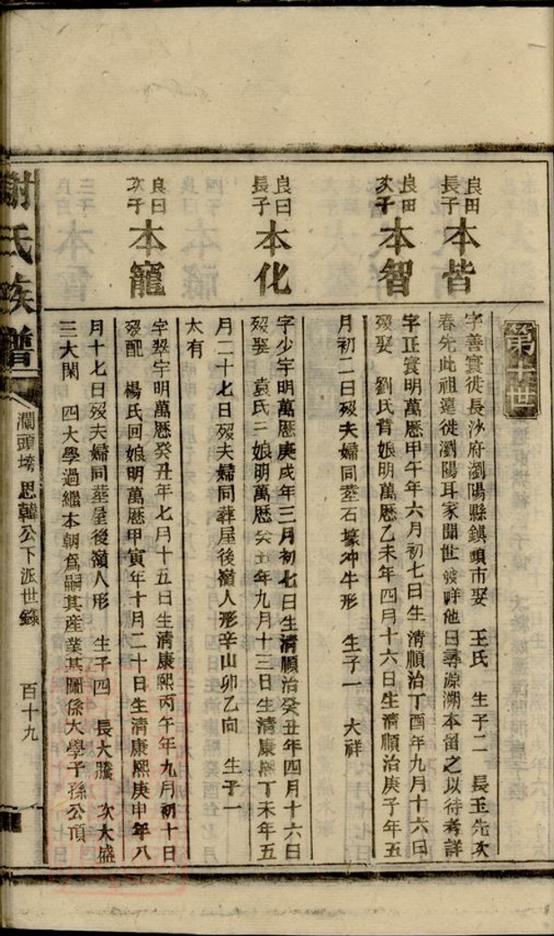 第十世
良田長子
本喈
字善寰徙長沙府瀏陽縣鎮頭市娶 王氏 生子二 長玉先次
春先此祖遠徙瀏陽耳家聞世 咩他日尋源溯本留之以待考詳
良田次子
本智
字正寰明萬曆甲午年六月初七日生清順治丁酉年九月十六日
歿娶 劉氏 娘明萬曆乙未年四月十六日生清順治庚子年五
月初二日歿夫婦同塟石壕冲牛形 生子一 大祥
良曰長子
本化
字少宇明萬曆庚戌年三月初七日生清順治癸丑年四月十六日
歿娶 袁氏二娘明萬曆癸丑年九月十三日生清康熙丁未年五
月二十七日歿夫婦同葬屋後嶺人形辛山卯乙向 生子一
太有
良曰次子
本寵
字翠宇明萬曆癸丑年七月十五日生清康熙丙午年九月初十日
歿配 楊氏回娘明萬曆甲寅年十月二十日生清康熙庚申年八
月十七日歿夫婦同塟屋後嶺人形 生子四 長大騰 次大盛
三大閑 四大學過繼本朝爲嗣其産業其圖係大學子孫公頂
謝氏族譜
瀾頭塝 思韓公下派世錄
百十九